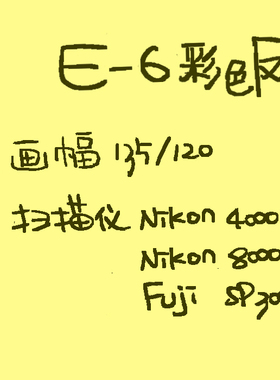 E-6彩色
画幅 135/120
扫描仪 Nikon 4000
Nikon 8000
Fuji SP30